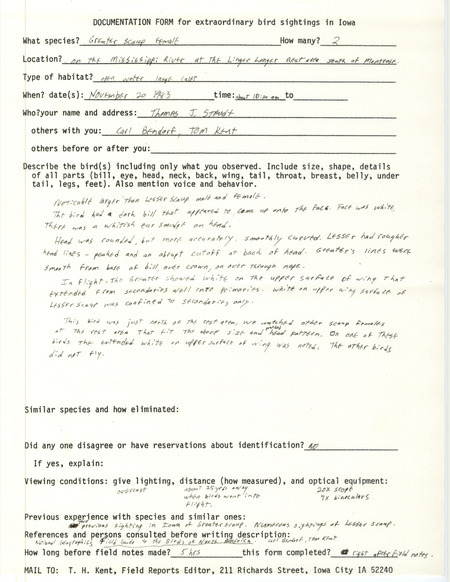 DOCUMENTATION FORM for extraordinary bird sightings in Iowa
What species? Greater Scaup Female How many? 2
Location? on the Mississippi River at the Linger Longer Rest area south of Montrose
Type of habitat? open water large inlet
When? date(s): November 20 1983 time: about 10:00 am to
Who? your name and address: Thomas J. Staudt
others with you: Carl Bendorf, Tom Kent
others before or after you:
Describe the bird(s) including only what you observed. Include size, shape, details
of all parts (bill, eye, head, neck, back, wing, tail, throat, breast, belly, under
tail, legs, feet). Also mention voice and behavior.
Noticable larger than Lesser Scaup male and female.
The bird had a dark bill that appeared to come up onto the face. Face was white.
There was a whitish ear smudge on head.
Head was rounded, but more accurately, smoothly curved. Lesser had rougher
head lines - peaked and an abrupt cutoff at back of head. Greater's lines were
smooth from base of bill over crown, on over through nape.
In flight - the Greater showed white on the upper surface of wing that
extended from secondaries well onto primaries. White on upper wing surface of
Lesser Scaup was confined to secondaries only.
This bird was just north of the rest area. We watched other scaup females
at the rest area that fit the above size and head pattern. On one of these
birds the extended white on upper surface of wing was noted. The other birds
did not fly.
Similar species and how eliminated:
Did any one disagree or have reservations about identification? no
If yes, explain:
Viewing conditions: give lighting, distance (how measured), and optical equipment:
overcast about 25 yds away 20x scope
when birds went into 7x binoculars
flight.
Previous experience with species and similar ones:
previous sighting in Iowa of Greater Scaup. Numerous sightings of Lesser Scaup.
References and persons consulted before writing description:
National Geographic Field Guide to the Birds of North America Carl Bendorf, Tom Kent
How long before field notes made? 5 hrs this form completed? right after field notes.
MAIL TO: T. H. Kent, Field Reports Editor, 211 Richards Street, Iowa City IA 52240